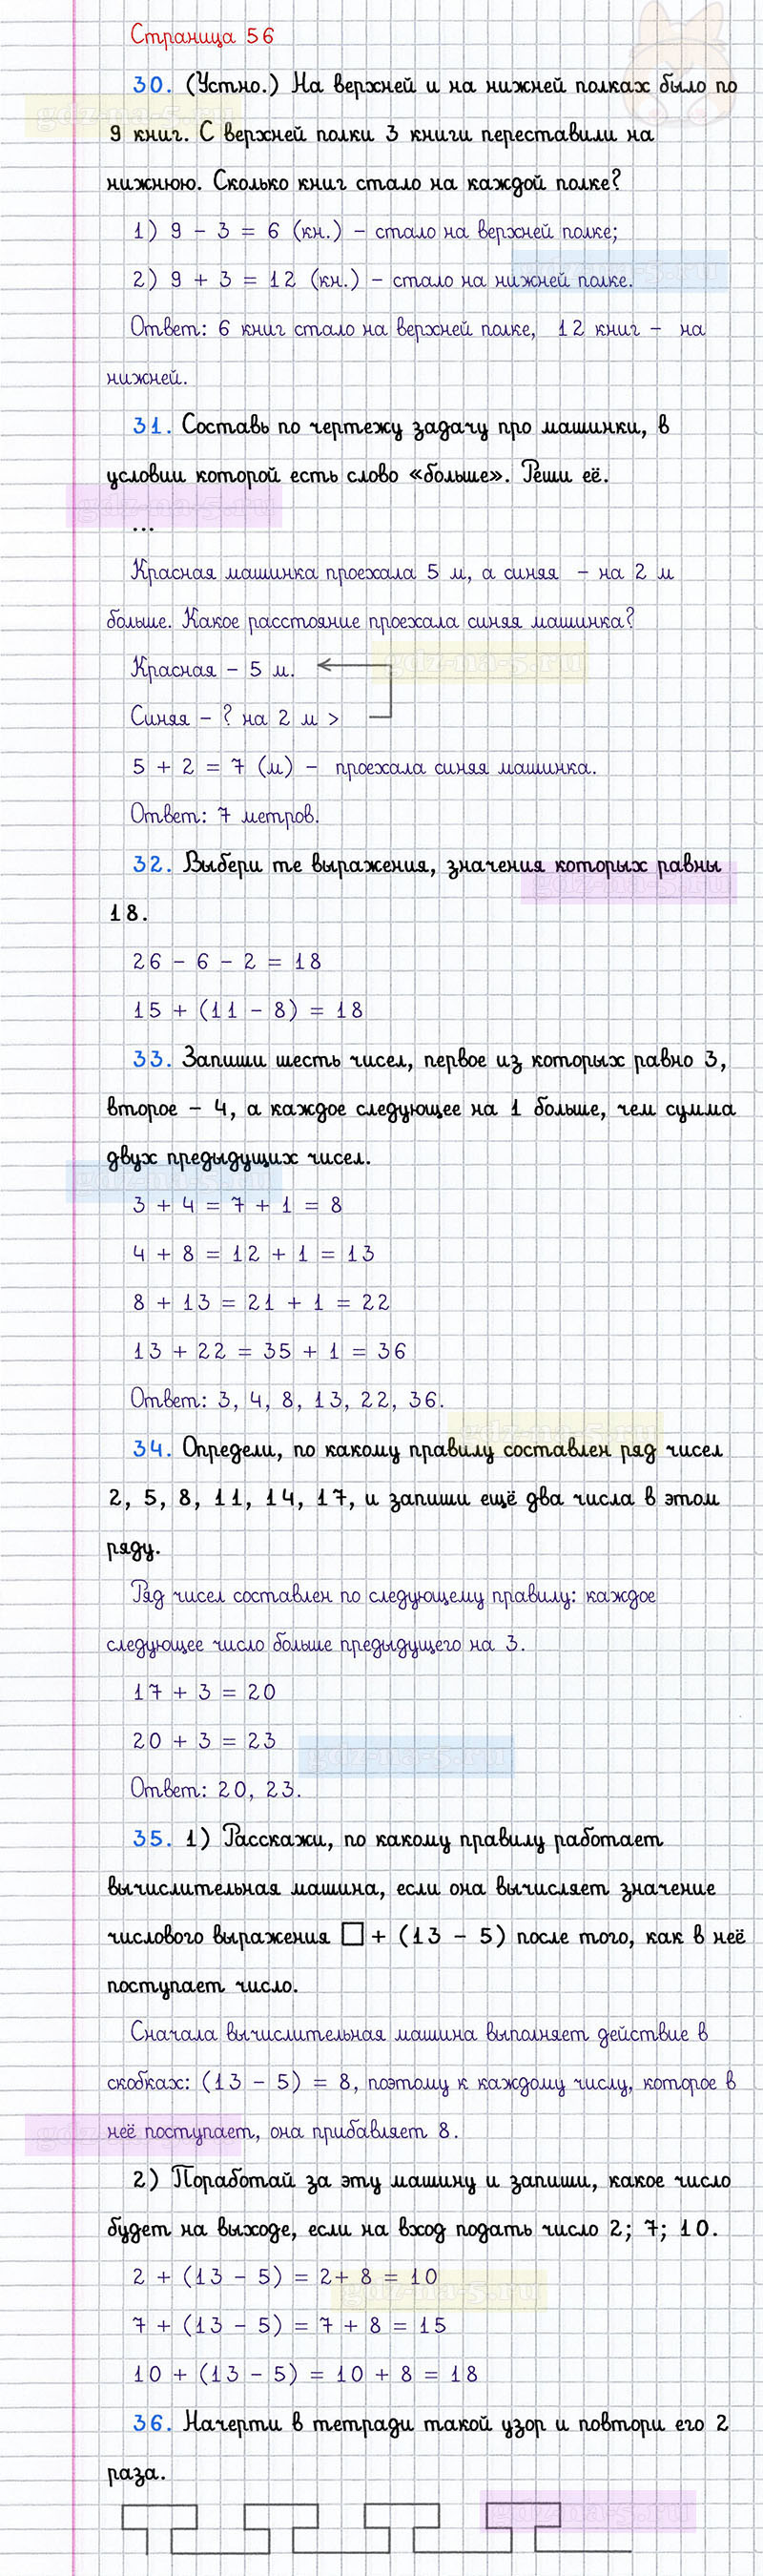 Страница 56
30. (Устно.) На верхней и на нижней полках было по
gdz-na-5.ru
9 книг. С верхней полки 3 книги переставили на
нижнюю. Сколько книг стало на каждой полке?
1) 9 - 3 = 6 (кн.) - стало на верхней полке;
gdz-na-5.ru
2) 9 + 3 = 12 (кн.) - стало на нижней полке.
Ответ: 6 книг стало на верхней полке, 12 книг - на
нижней.
31. Составь по чертежу задачу про машинки, в
условии которой есть слово «больше». Реши её.
gdz-na-5.ru
...
Красная машинка проехала 5 м, а синяя - на 2 м
больше. Какое расстояние проехала синяя машинка?
gdz-na-5.ru
Красная - 5 м.
Синяя - ? на 2 м >
5 + 2 = 7 (м) - проехала синяя машинка.
Ответ: 7 метров.
32. Выбери те выражения, значения которых равны
gdz-na-5.ru
18.
26 - 6 - 2 = 18
15 + (11 - 8) = 18
33. Запиши шесть чисел, первое из которых равно 3,
второе - 4, а каждое следующее на 1 больше, чем сумма
двух предыдущих чисел.
gdz-na-5.ru
3 + 4 = 7 + 1 = 8
4 + 8 = 12 + 1 = 13
8 + 13 = 21 + 1 = 22
13 + 22 = 35 + 1 = 36
Ответ: 3, 4, 8, 13, 22, 36.
gdz-na-5.ru
34. Определи, по какому правилу составлен ряд чисел
2, 5, 8, 11, 14, 17, и запиши ещё два числа в этом
ряду.
Ряд чисел составлен по следующему правилу: каждое
следующее число больше предыдущего на 3.
17 + 3 = 20
20 + 3 = 23
gdz-na-5.ru
Ответ: 20, 23.
35. 1) Расскажи, по какому правилу работает
вычислительная машина, если она вычисляет значение
числового выражения □ + (13 - 5) после того, как в неё
поступает число.
Сначала вычислительная машина выполняет действие в
скобках: (13 - 5) = 8, поэтому к каждому числу, которое в
неё поступает, она прибавляет 8.
gdz-na-5.ru
2) Поработай за эту машину и запиши, какое число
будет на выходе, если на вход подать число 2; 7; 10.
2 + (13 - 5) = 2+ 8 = 10
gdz-na-5.ru
7 + (13 - 5) = 7 + 8 = 15
10 + (13 - 5) = 10 + 8 = 18
36. Начерти в тетради такой узор и повтори его 2
раза.
gdz-na-5.ru